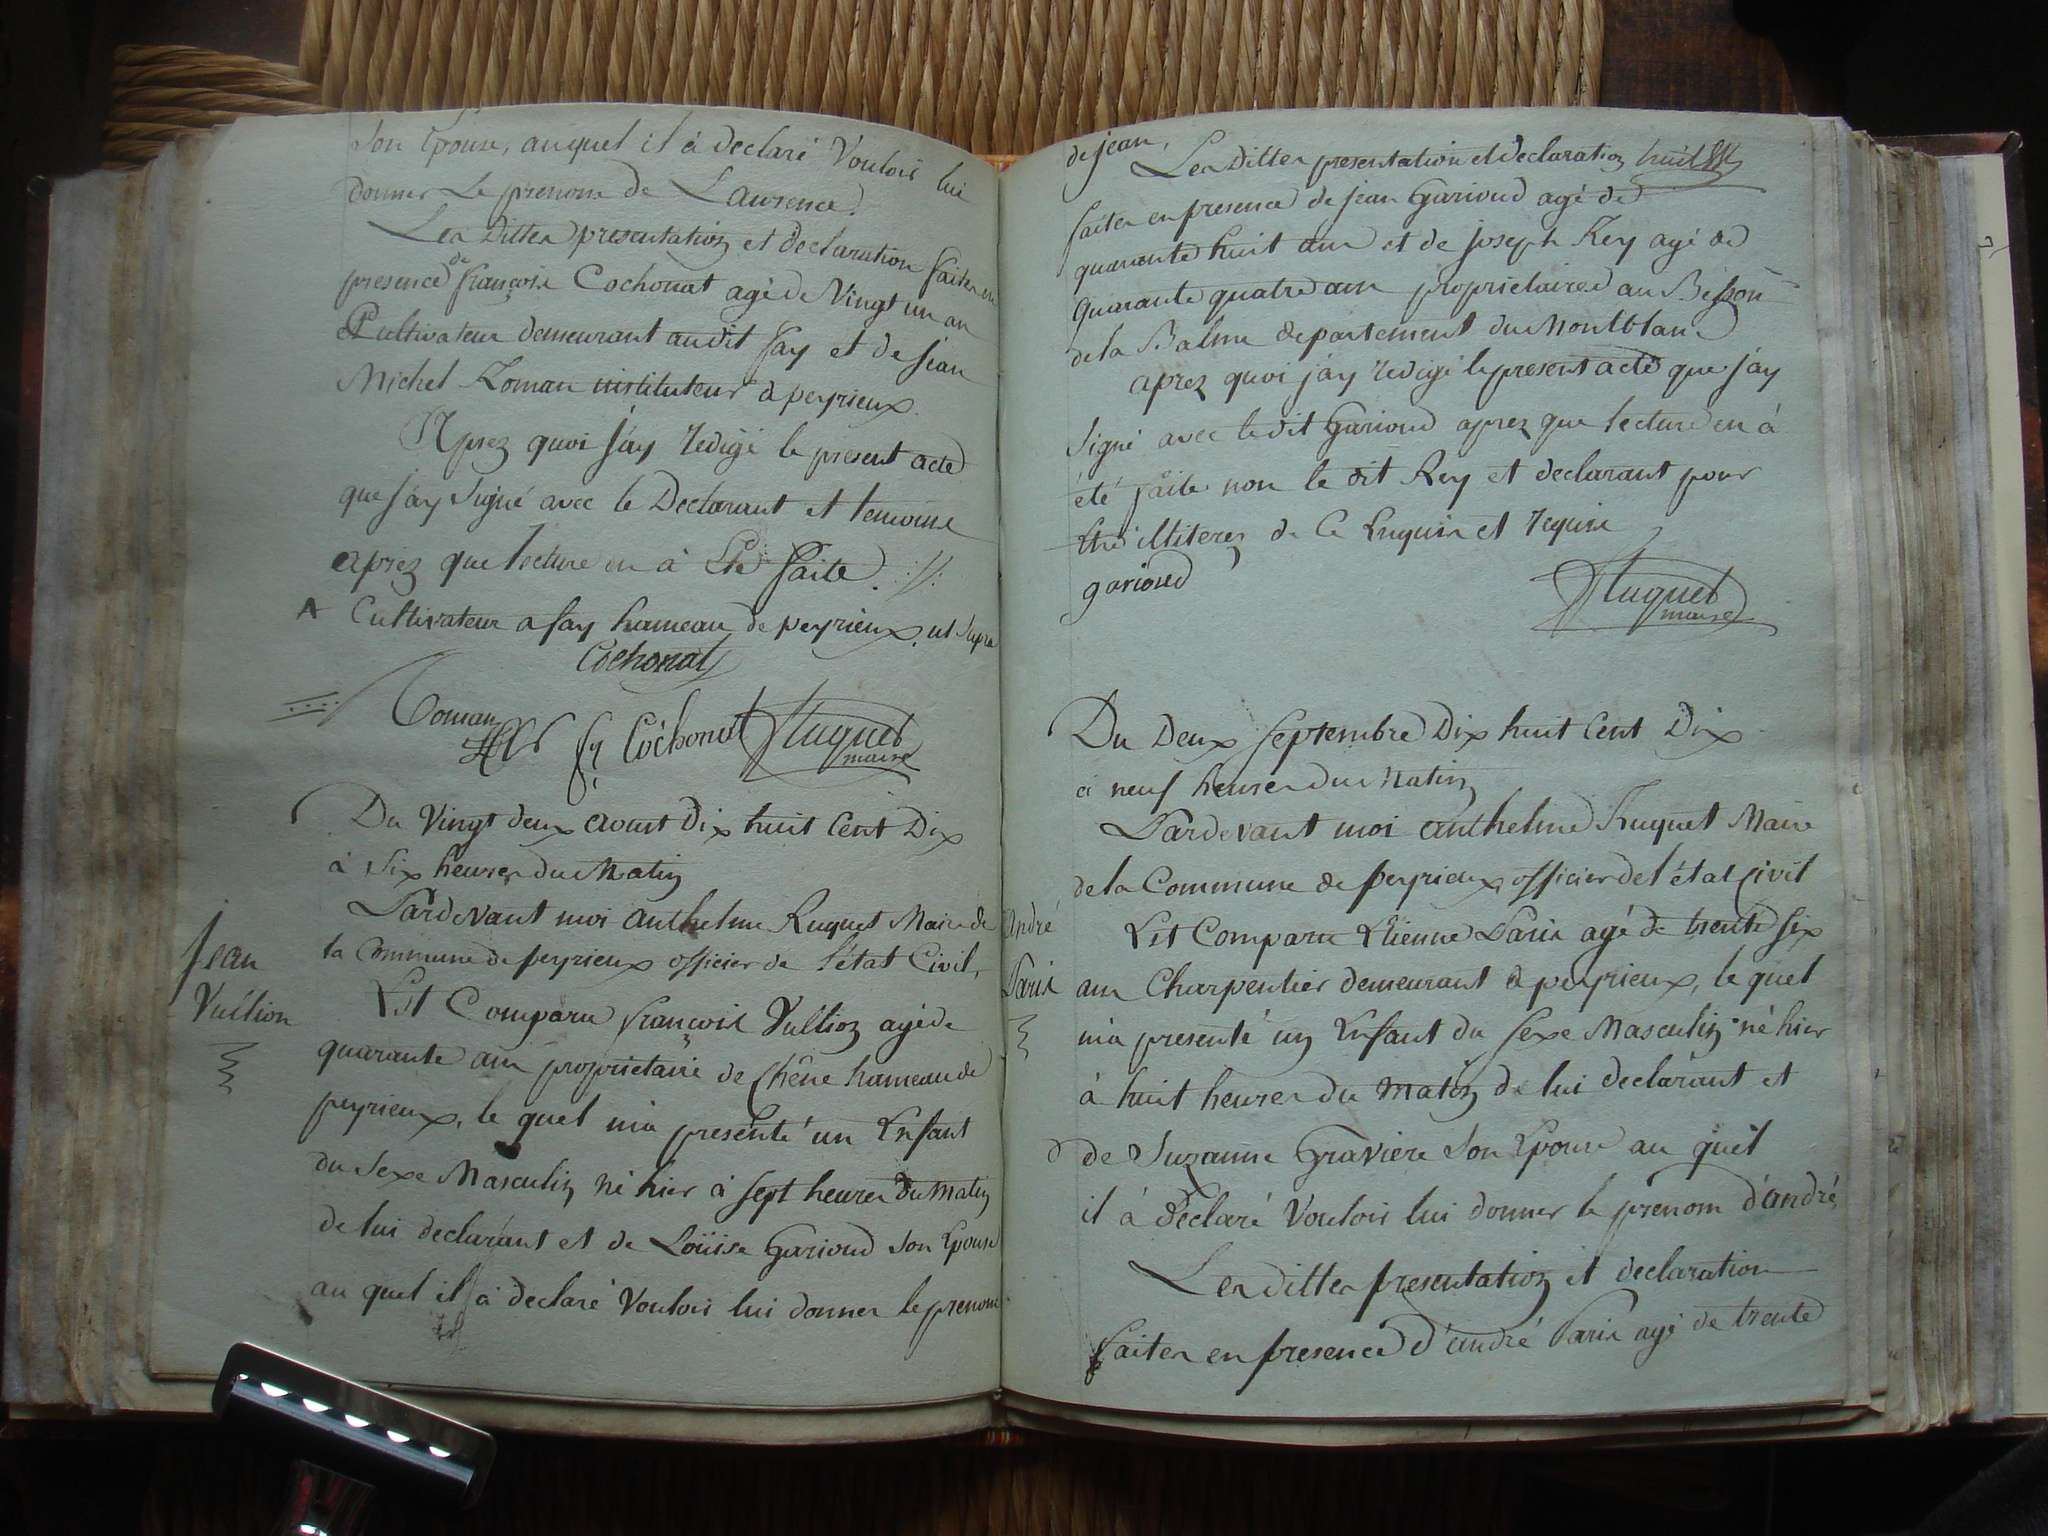 son Epouse, auquel il à declaré Vouloir lui
donner Le prenom de Laurence.
Les Dittes presentation et declaration faites en
presence de françois Cochonat agé de Vingt un an
Cultivateur demeurant audit fay et de jean
Michel Roman instituteur à peyrieux.
Aprez quoi j'ay redigé le present acte
que j'ay signé avec le Declarant et temoins
aprez que lecture en à Eté faite.
Cultivateur a fay hameau de peyrieux. ut supra
Cochonat
Roman fs Cochonat Huguet
maire
Du Vingt deux aoust Dix huit Cent Dix
à Six heures du Matin
Jean
Vullion
Pardevant moi anthelme Huguet Maire de
la Commune de peyrieux officier de l'état Civil,
Est Comparu françois Vullion agé de
quarante ans proprietaire de Chêne hameau de
peyrieux, le quel m'a presénté un Enfant
du Sexe Masculin né hier à sept heures du Matin
de lui declarant et de Loüise Garioud son Epouse
au quel il à declaré Vouloir lui donner le prenom
de jean,
Les Dittes presentation et declaration
faites en presence de jean Garioud agé de
quarante huit ans et de joseph Rey agé de
quarante quatre ans proprietaires au
de la Balme departement du Montblanc
aprez quoi j'ay redigé le present acte que j'ay
signé avec le dit Garioud aprez que lecture en à
été faite non le dit Rey et declarant pour
être illiterez de Ce Enquis et requis
garioud
Huguet
maire
Du Deux septembre Dix huit Cent Dix
à neuf heures du Matin
Pardevant moi anthelme Huguet Maire
de la Commune de peyrieux officier de l'état Civil
André
Paris
Est Comparu Etienne Paris agé de trente six
ans Charpentier demeurant à peyrieux, le quel
m'a presenté un Enfant du sexe Masculin né hier
à huit heures du Matin de lui declarant et
de Suzanne Graviere son Epouse au quel
il à declaré Vouloir lui donner le prenom d'andré
Les dittes presentation et declaration
faites en presence d'andré Paris agé de trente